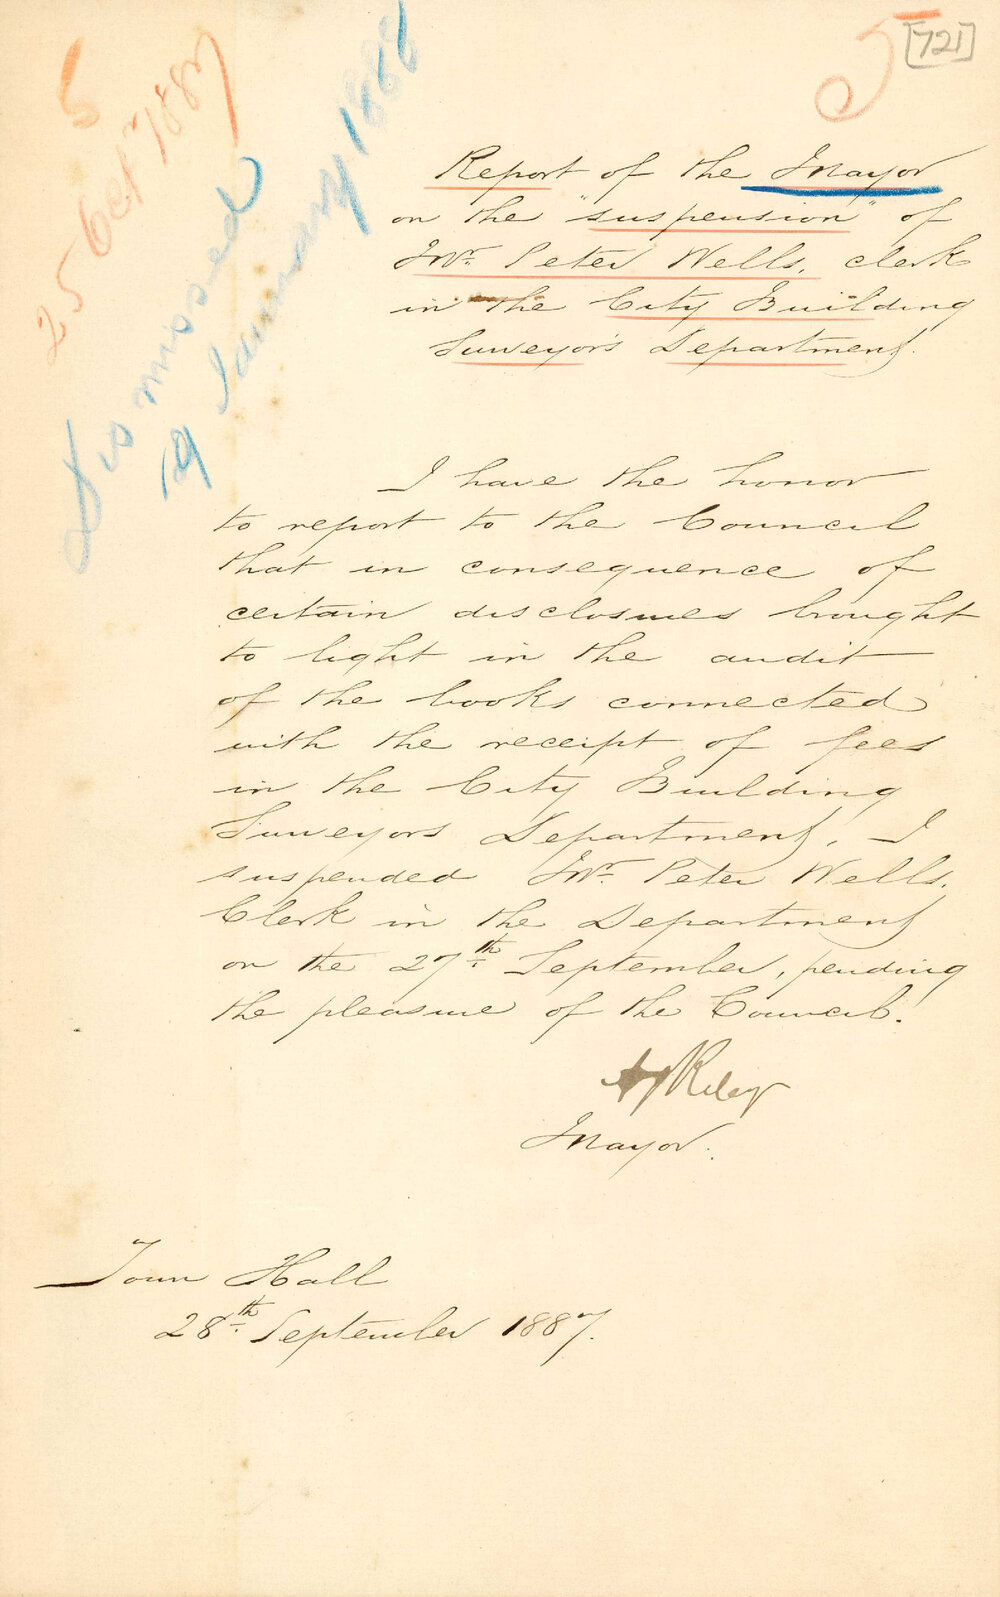 5
[721]
5
25 Oct 1887
Dismissed
19 January 1888
Report of the Mayor
on the "suspension" of
Mr. Peter Wells, clerk
in the City Building
Surveyor's Department.
I have the honor
to report to the Council
that in consequence of
certain disclosures brought
to light in the audit
of the books connected
with the receipt of fees
in the City Building
Surveyors Department, I
suspended Mr. Peter Wells,
Clerk in the Department
on the 27th September, pending
the pleasure of the Council.
AJ Riley
Mayor.
Town Hall
28th September 1887.